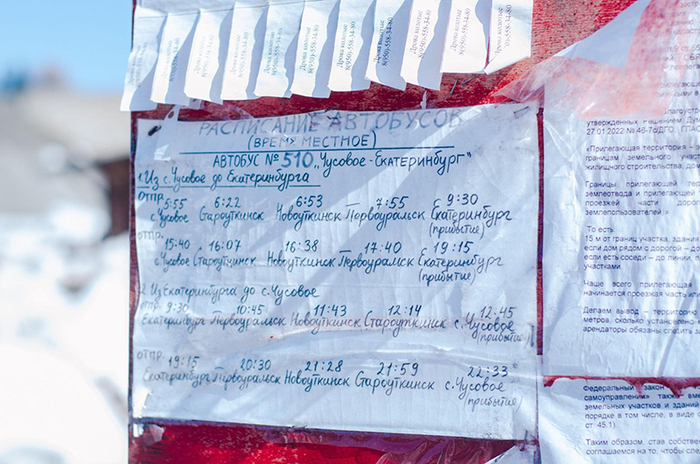 Дрова колотые
8(950)-558-34-80
Дрова колотые
8(950)-558-34-80
Дрова колотые
8(950)-558-34-80
Дрова колотые
8(950)-558-34-80
Дрова колотые
8(950)-558-34-80
РАСПИСАНИЕ АВТОБУСОВ
(ВРЕМЯ МЕСТНОЕ)
АВТОБУС №510 „Чусовое-Екатеринбург"
1. Из с. Чусовое до Екатеринбурга
отпр.
5:55 6:22 6:53 7:55 9:30
с. Чусовое Староуткинск Новоуткинск Первоуральск Екатеринбург
(прибытие)
отпр.
15:40 16:07 16:38 17:40 19:15
с. Чусовое Староуткинск Новоуткинск Первоуральск Екатеринбург
(прибытие)
2. Из Екатеринбурга до с. Чусовое
отпр. 9:30 10:45 11:43 12:14 12:45
Екатеринбург Первоуральск Новоуткинск Староуткинск с. Чусовое
(прибытие)
отпр. 19:15 20:30 21:28 21:59 22:33
Екатеринбург Первоуральск Новоуткинск Староуткинск с. Чусовое
(прибытие)
утвержденных Решением Дум
27.01.2022 №46-7о/ДГО,
«Прилегающая территория –
границам земельного участ
жилищного строительства, дом
Границы, прилегающей
землеотвода и прилегающей
проезжей части дорог
землепользователей»
То есть:
15 м от границ участка, здания
если дом рядом с дорогой – до
если есть соседи – до линии, п
участками.
Чаще всего прилегающая
начинается проезжая часть
Делаем вывод – территорию
метров, сколько установлено
арендаторы обязаны следить за
Федеральный закон
самоуправлении» также вме
земельных участков и зданий
порядке в том числе, в виде
ст. 45.1)
Таким образом, став собстве
соглашаемся на то, чтобы сле